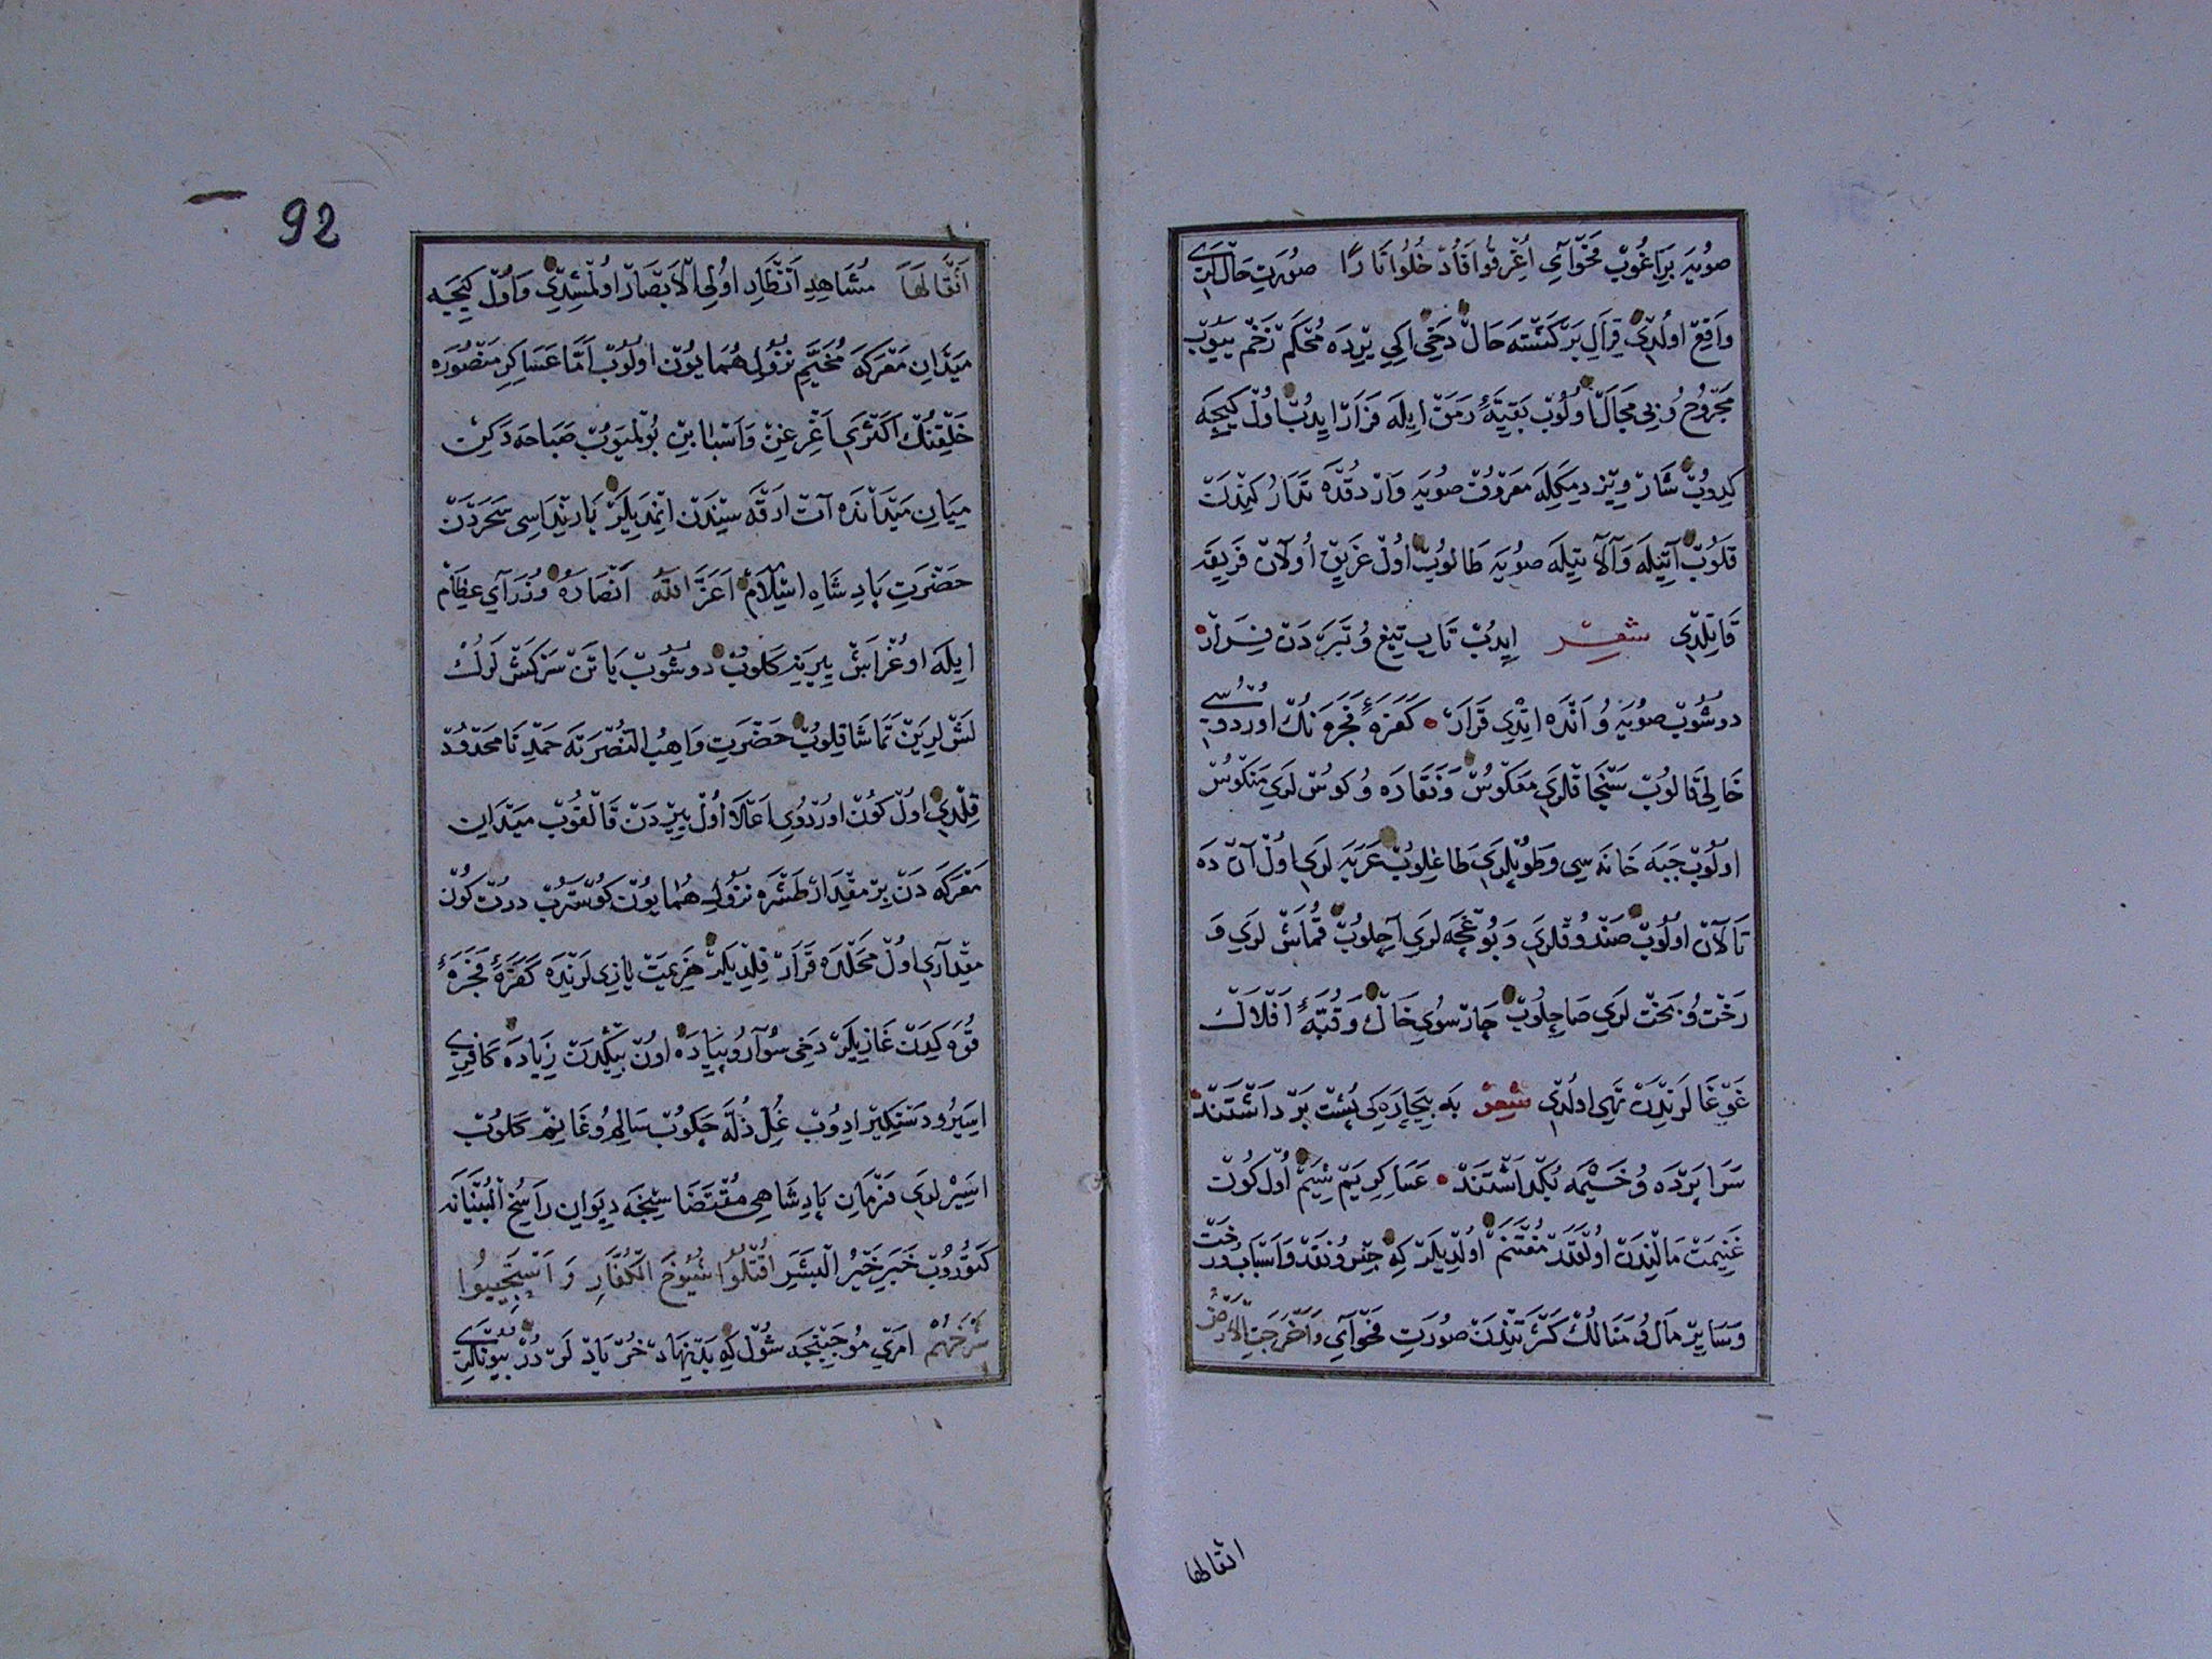 صُويَه بَرَاغُوبْ فَحْوَآيِ اُغْرِقُوا فَاُدْخِلُوا نَارًا صُورَتِ حَالْلَرِي
وَاقِعْ اُولْدِي قِرَالِ بَرْكَشْتَه حَالْ دَخِي اِكِي يِرْدَه مُحْكَمْ زَخْمْ يِيُوبْ
مَجْرُوحْ وُ بِي مَجَالْ اُولُوبْ بَقِيَّهٔ رَمَقْ اِيلَه فَرَارْ ايدُبْ اُولْ كِيجَه
كِدُوبْ شَارْ وِيزْ دِيمَكِلَه مَعْرُوفْ صُويَه وَارْدُقْدَه تَيمَارُ كِنْدَنْ
قَلُوبْ آتِيلَه وَ آلَاتِيلَه صُويَه طَالُوبْ اُولْ غَرِيقْ اُولَانْ فَرِيقَه
قَاتِلْدِي شعر ايدُبْ تَابِ تِيغْ وُ تَبَرْدَنْ فِرَارْ
دُوشُوبْ صُويَه وُ اَنْدَه اِتْدِي قَرَارْ كَفَرَهٔ فَجَرَه نُكْ اُورْدُوسِي
خَالِي قَالُوبْ سَنْجَاقْلَرِي مَعْكُوسْ وَ نَقَارَه وُ كُوسْ لَرِي مَنْكُوسْ
اُولُوبْ جَبَه خَانَه سِي وَ طُوپْلَرِي طَاغِلُوبْ عَرَبَه لَرِي اُولْ آنْ دَه
تَالَانْ اُولُوبْ صَنْدُوقْلَرِي وَ بُوغْچَه لَرِي آچِلُوبْ قُمَاشْ لَرِي وَ
رَخْتْ وُ بَخْتْ لَرِي صَاچِلُوبْ چَارْسُوي خَاكْ وَ قُبَّهٔ اَفْلَاكْ
غَوْغَالَرِنْدَنْ تَهِي اُولْدِي شعر بَه بِيچَارَه كِي پُشْتْ بَرْ دَاشْتَنْدْ
سَرَاپَرْدَه وُ خَيْمَه بُكْذَاشْتَنْدْ عَسَاكِرِ يَمْ شِيَمْ اُولْ كُونْ
غَنِيمَتْ مَالِنْدَنْ اُولْقَدَرْ مُغْتَنَمْ اُولْدِيلَرْ كِه جِنْسْ وُ نَقْدْ وَ اَسْبَابْ وُ رَخْتْ
وَ سَايِرْ مَالْ وُ مَنَالُكْ كَثْرَتِنْدَنْ صُورَتِ فَحْوَآيِ وَ اَخْرَجَتِ الْاَرْضُ
اثقالها
92
اَثْقَالَهَا مُشَاهِدِ اَنْظَارِ اُولِي الْاَبْصَارْ اُولْمُشِدِي وَ اُولْ كِيجَه
مَيْدَانِ مَعْرَكَه مُخَيَّمِ نُزُولِ هُمَايُونْ اُولُوبْ اَمَّا عَسَاكِرِ مَنْصُورَه
خَلْقِنُكْ اَكْثَرِي اَغِرْغِنْ وَ اَسْبَابِنْ بُولْمَيُوبْ صَبَاحَه دَكِنْ
مِيَانِ مَيْدَانْدَه آتْ اَرْقَه سِنْدَنْ اِنْمَدِيلَرْ يَارِنْدَاسِي سَحَرْدَنْ
حَضْرَتِ پَادِشَاهِ اِسْلَامْ اَعَزَّ اللّٰهُ اَنْصَارَهُ وُزَرَآيِ عِظَامْ
ايلَه اُوغْرَاشْ يِيرِينَه كَلُوبْ دُوشُوبْ يَاتَنْ سَرْكَشْ لَرُكْ
لَشْ لَرِينْ تَمَاشَا قِلُوبْ حَضْرَتِ وَاهِبُ النُّصْرَتَه حَمْدِ نَا مَحْدُودْ
قِلْدِي اُولْ كُونْ اُورْدُوي اَعْلَا اُولْ يِيرْدَنْ قَالْقُوبْ مَيْدَانِ
مَعْرَكَه دَنْ بِرْ مِقْدَارْ طَشْرَه نُزُولِ هُمَايُونْ كُوسْتَرُبْ دُرْتْ كُونْ
مِقْدَارِي اُولْ مَحَلْدَه قَرَارْ قِلْدِيلَرْ هَزِيمَتْ يَازِي لَرِنْدَه كَفَرَهٔ فَجَرَهٔ
قُوَه كِيدَنْ غَازِيلَرْ دَخِي سُوَارُ وُ پِيَادَه اُونْ بِيكْدَنْ زِيَادَه كَافِرِي
اَسِيرُ وُ دَسْتَكِيرْ ايدُوبْ غُلِّ ذُلَّه چَكُوبْ سَالِمْ وُ غَانِمْ كَلُوبْ
اَسِيرْ لَرِي فَرْمَانِ پَادِشَاهِي مُقْتَضَاسِنْجَه دِيوَانِ رَاسِخُ الْبُنْيَانَه
كَتُورُوبْ خَبَرِ خَيْرُ الْبَشَرْ اُقْتُلُوا شُيُوخَ الْكُفَّارِ وَ اسْتَحْيُوا
شَرْخَهُمْ اَمْرِي مُوجِبِنْجَه شُولْ كِه بَدْنِهَادْ خُرْيَادْ لَرْ دُرْ بُيُونْلَرِي